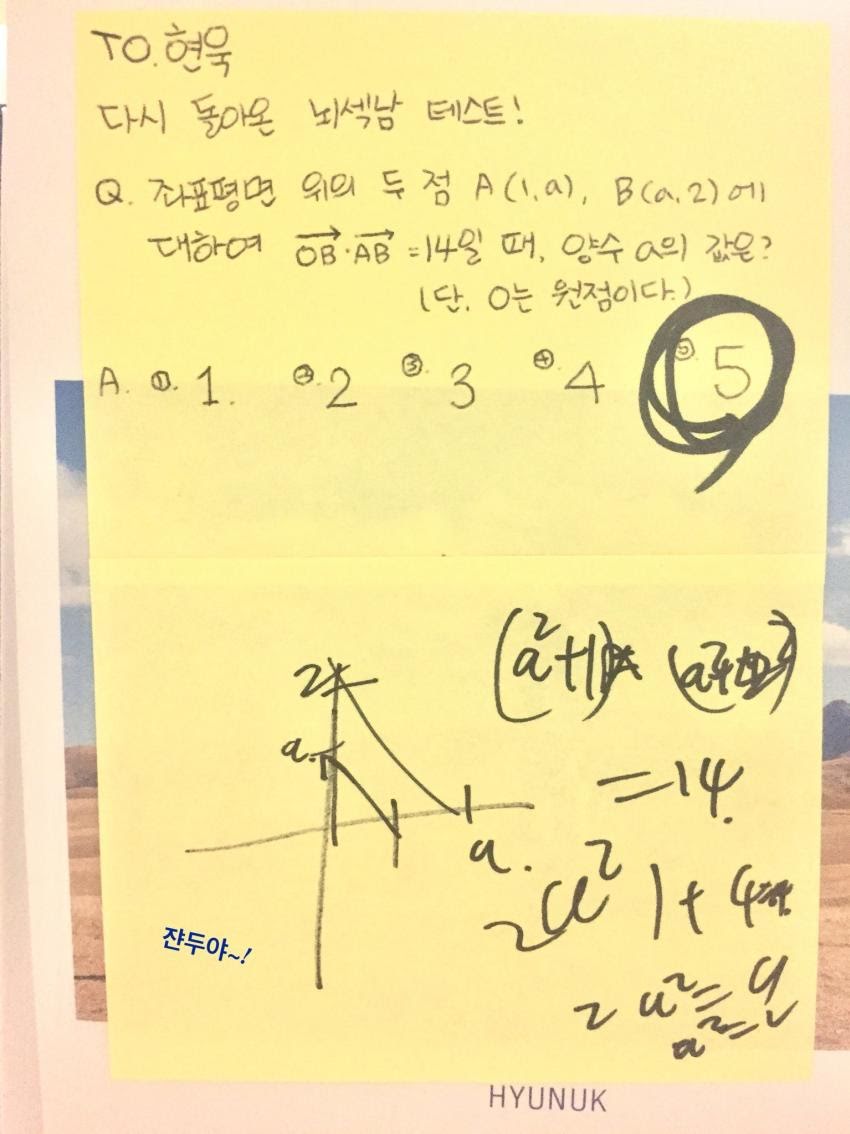 TO. 현욱
다시 돌아온 뇌섹남 테스트!
Q. 좌표평면 위의 두 점 A(1,a), B(a,2)에
대하여 OB·AB =14일 때, 양수 a의 값은?
(단, O는 원점이다.)
A. ①. 1. ②. 2 ③. 3 ④. 4 ⑤. 5
2
a.
a.
=14.
2a² 1+4
2a²=9
a²=
쟌두야~!
HYUNUK